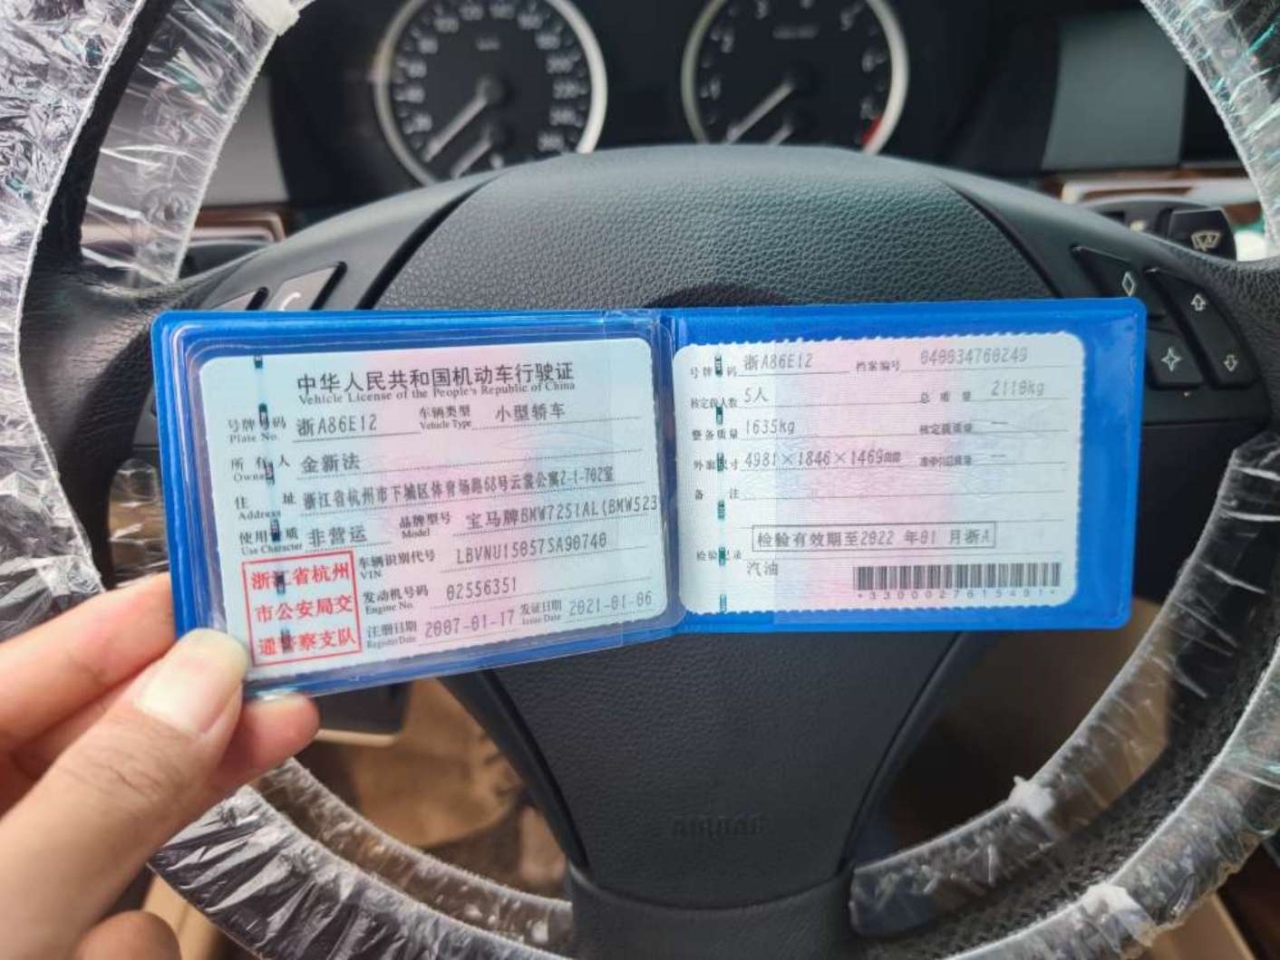 中华人民共和国机动车行驶证
Vehicle License of the People's Republic of China
号牌号码 浙A86E12 车辆类型 小型轿车
Plate No. Vehicle Type
所有人 金新法
Owner
住址 浙江省杭州市下城区体育场路68号云裳公寓2-1-702室
Address
使用性质 非营运 品牌型号 宝马牌BMW7251AL(BMW523
Use Character Model
浙江省杭州
市公安局交
通警察支队
车辆识别代号 LBVNU15057SA90740
VIN
发动机号码 02556351
Engine No.
注册日期 2007-01-17 发证日期 2021-01-06
Register Date Issue Date
号牌号码 浙A86E12 档案编号 040034760249
核定载人数 5人 总质量 2110kg
整备质量 1635kg 核定载质量 —
外廓尺寸 4981×1846×1469 准牵引总质量 —
备注
检验有效期至2022年01月浙A
检验记录
汽油
*3300027615491*
AIRBAG